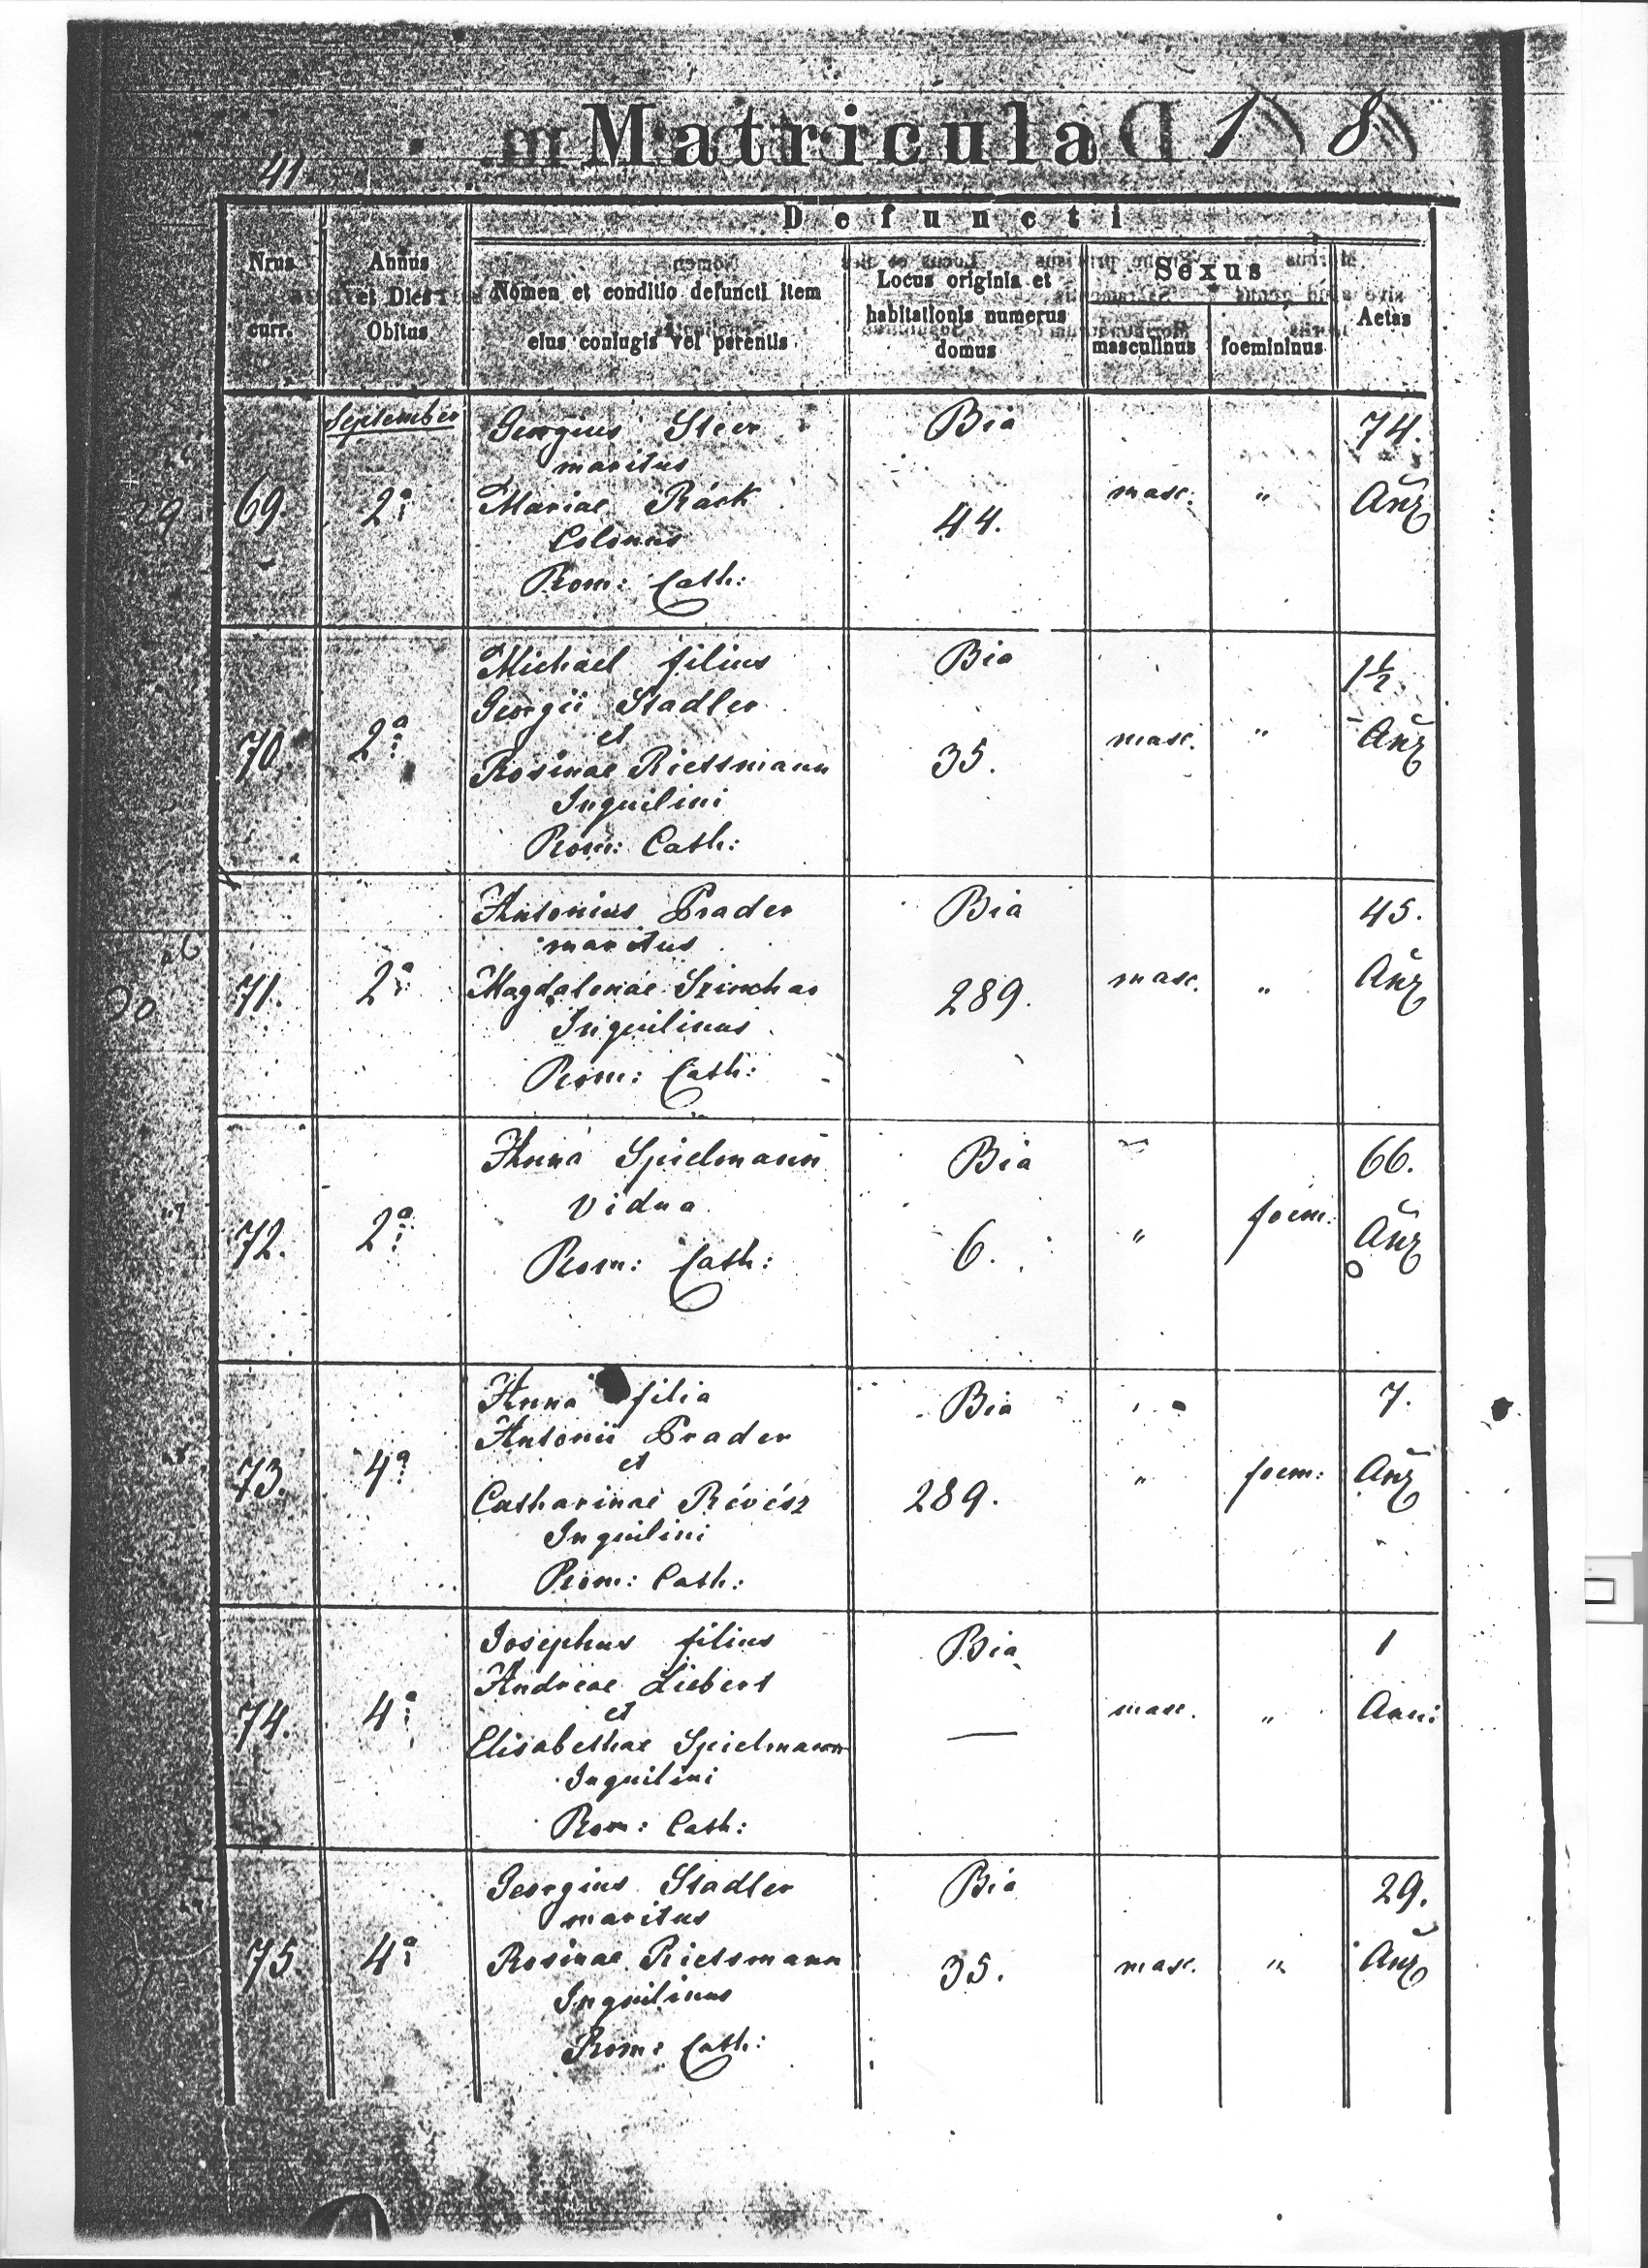 Matricula 18
41
Defuncti
Nrus curr.
Annus vel Dies Obitus
Nomen et conditio defuncti item
eius coniugis vel parentis
Locus originis et
habitationis numerus
domus
Sexus
masculinus
foemininus
Aetas
September
Georgius Steer
maritus
Mariae Ráck
Colonus
Rom: Cath:
69.
2a
Bia
44.
masc:
"
74.
Añ
Michael filius
Georgii Stadler
et
Rosinae Riessmann
Inquilini
Rom: Cath:
70.
2a
Bia
35.
masc.
"
1½
Añ
Antonius Prader
maritus
Magdalenae
Inquilinus
Rom: Cath:
71.
2a
Bia
289.
masc.
"
45.
Añ
Anna Spielmann
Vidua
Rom: Cath:
72.
2a
Bia
6.
"
foem:
66.
Añ
Anna filia
Antonii Prader
et
Catharinae Révész
Inquilini
Rom: Cath:
73.
4a
Bia
289.
"
foem:
7.
Añ
Josephus filius
Andreae Liebert
et
Elisabethae Spielmann
Inquilini
Rom: Cath:
74.
4a
Bia
—
masc.
"
1
Anni
Georgius Stadler
maritus
Rosinae Riessmann
Inquilinus
Rom: Cath:
75.
4a
Bia
35.
masc.
"
29.
Añ